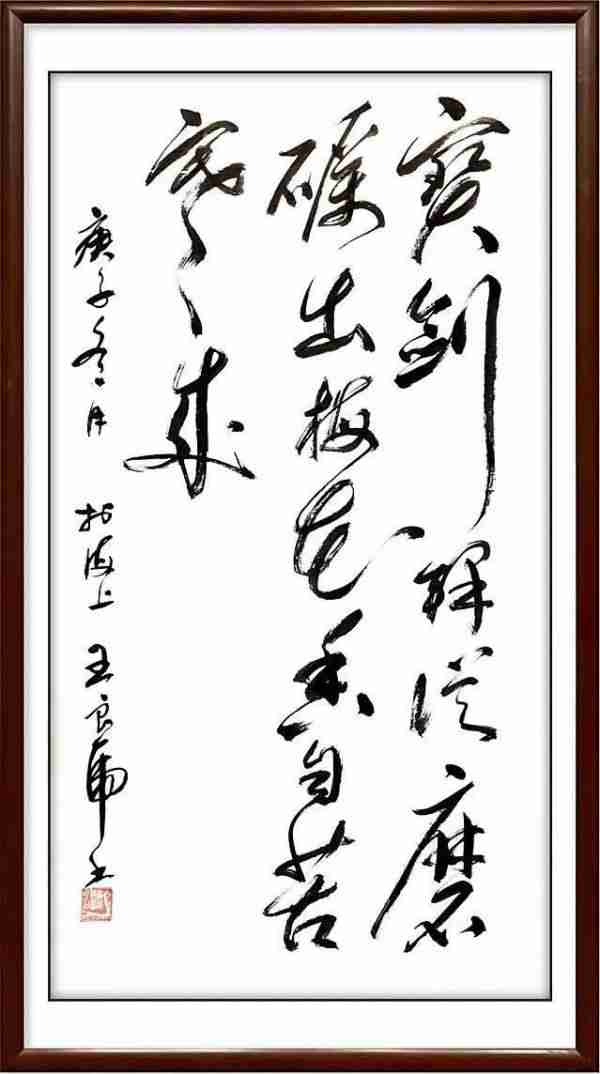 寶劍鋒從磨
礪出梅花香自苦
寒來
庚子冬月於海上王良虎书